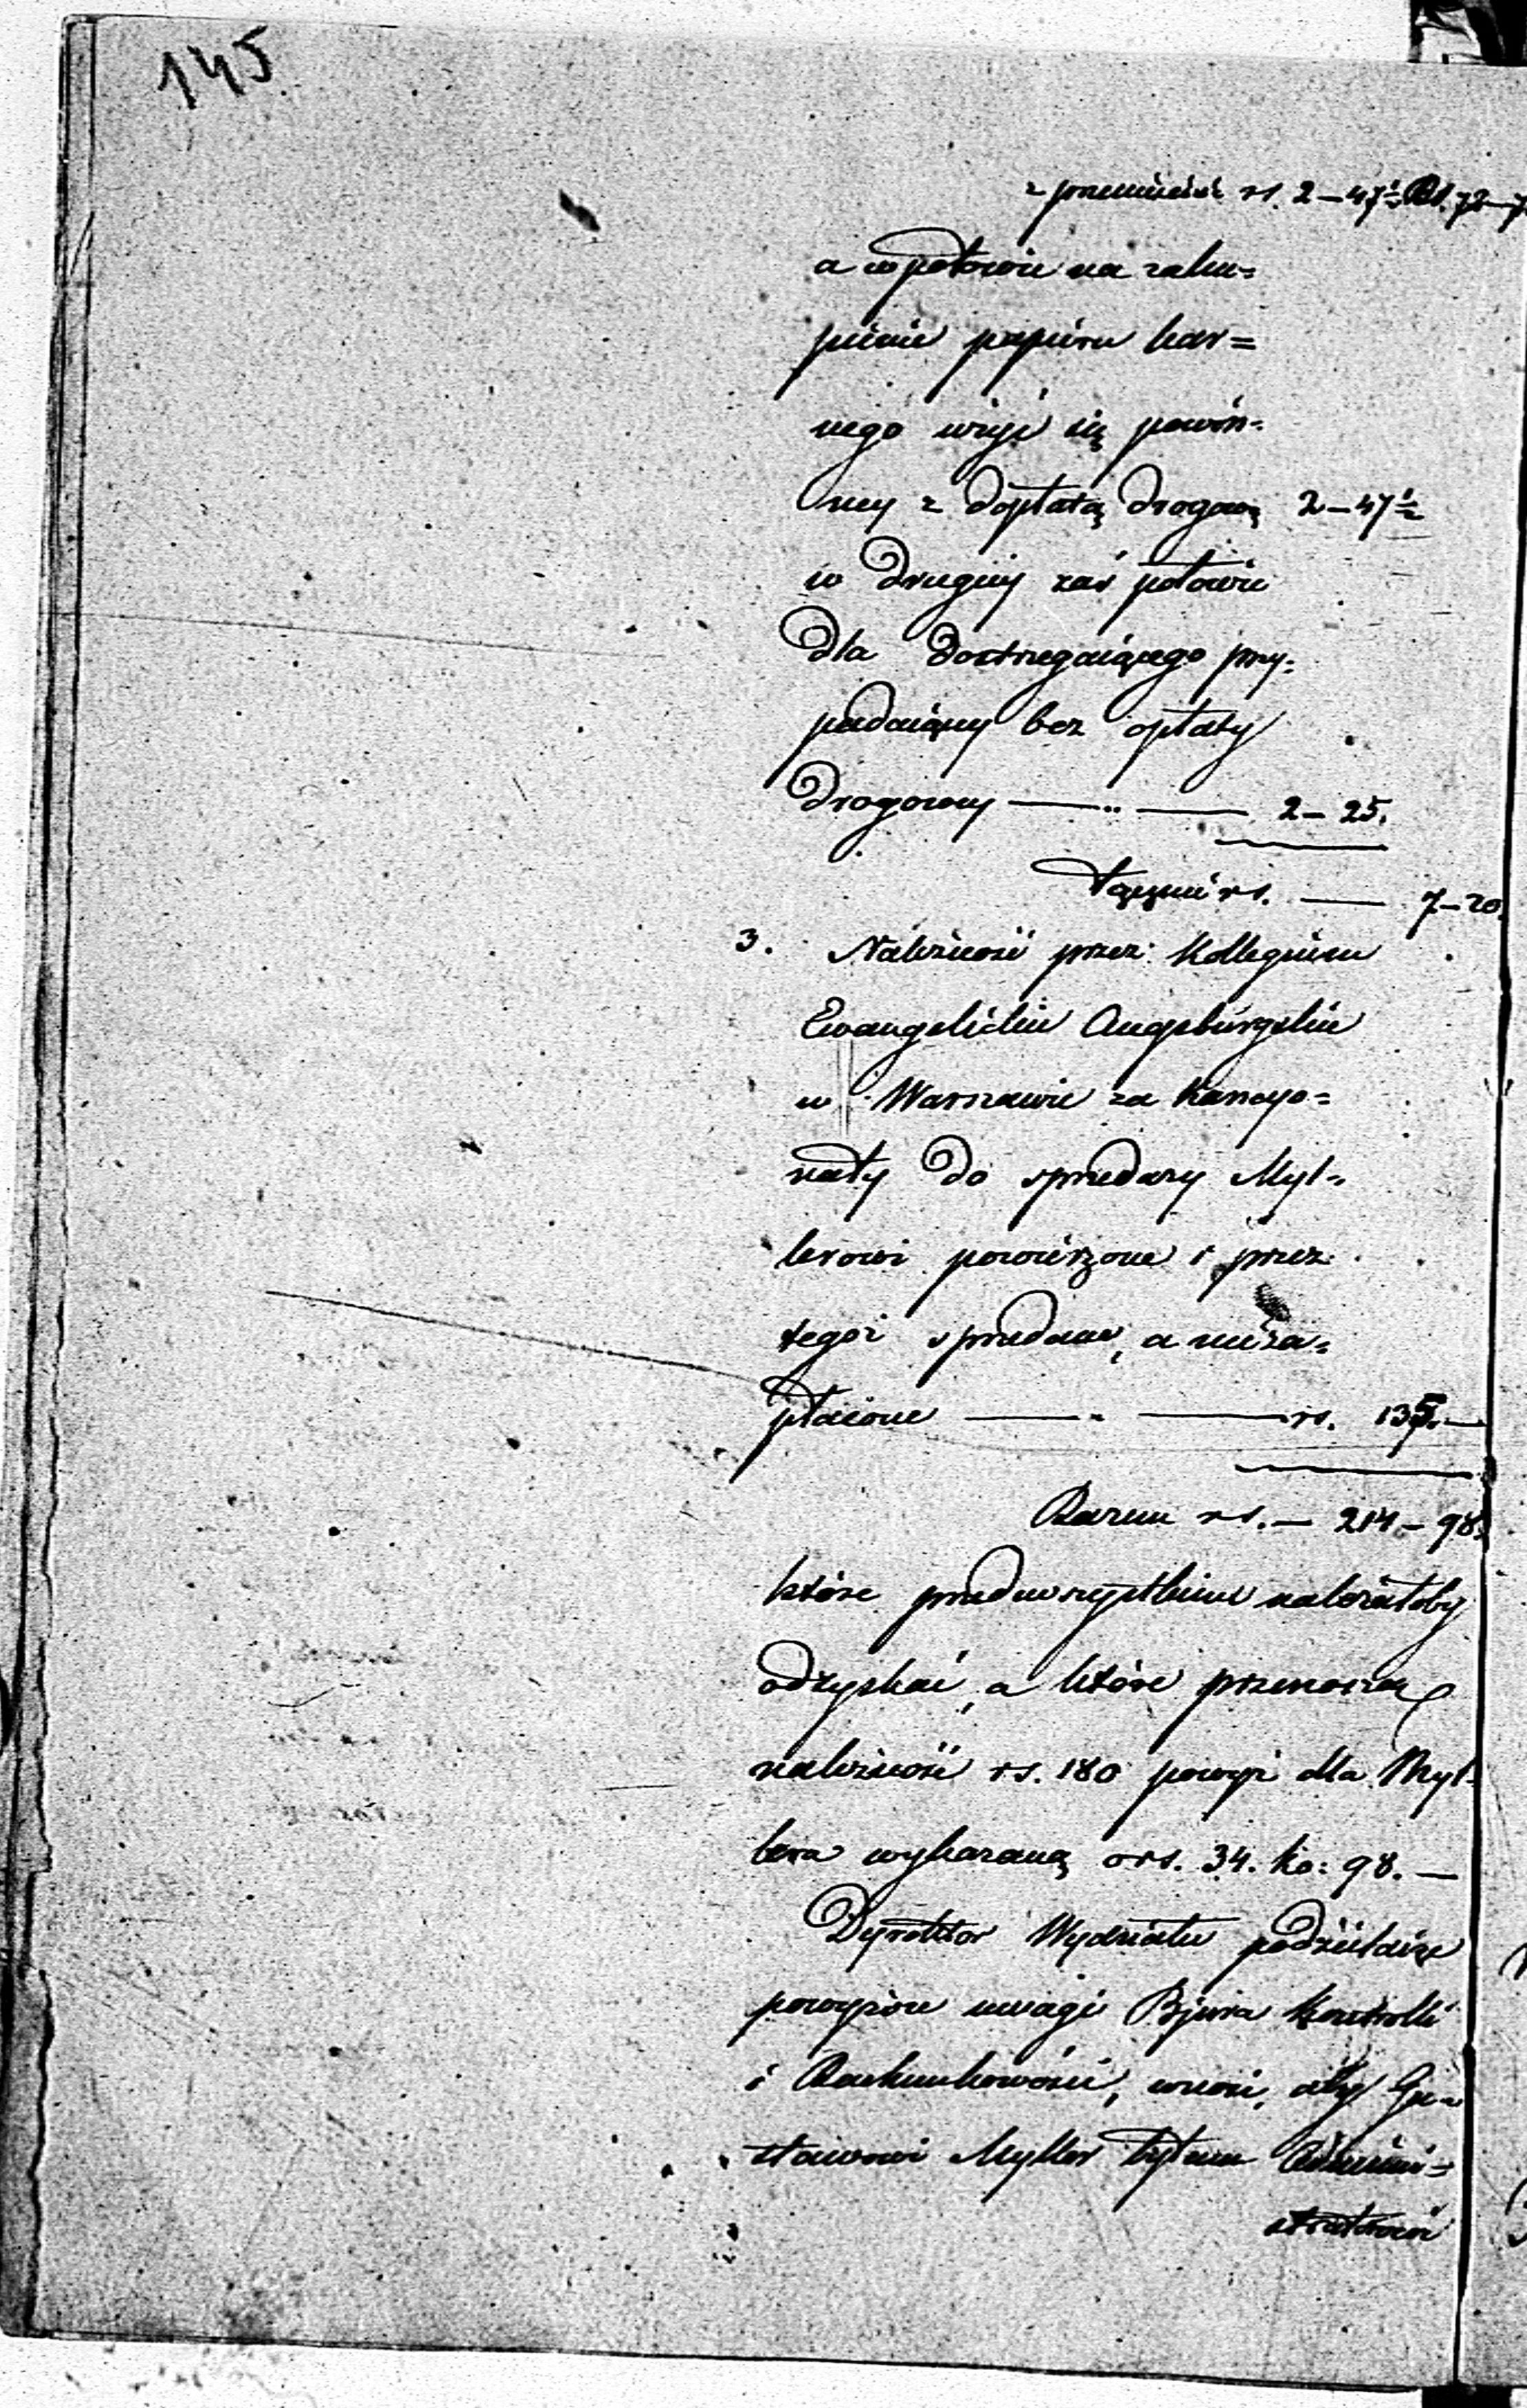 145
z przeniesień rs. 2-47½ Rs. 72-7
a w połowie na zaku-
pienie papieru kar=
nego użyć się powin-
ney z dopłatą drogową 2-47½
w drugiey zaś połowie
dla dostrzegaiącego przy-
padaiącey bez opłaty
drogowey — „ — 2-25.
Łącznie rs. — 7-20.
3. Należność przez Kollegium
Ewangelickie Augsburgskie
w Warszawie za Kancyo=
nały do sprzedaży Myl-
lerowi powierzone i przez
tegoż sprzedane, a nieza-
płacone — „ — rs. 135.—
Razem rs. — 214-98.
które przedewszystkiem należałoby
odzyskać, a które przenoszą
należność rs. 180 powyż dla Myl-
lera wykazaną o rs. 34. ko: 98. —
Dyrektor Wydziału podzielaiąc
powyższe uwagi Bjura Kontrolli
i Rachunkowości, wnosi, aby Gu-
stawowi Myller byłemu Admini=
stratorowi